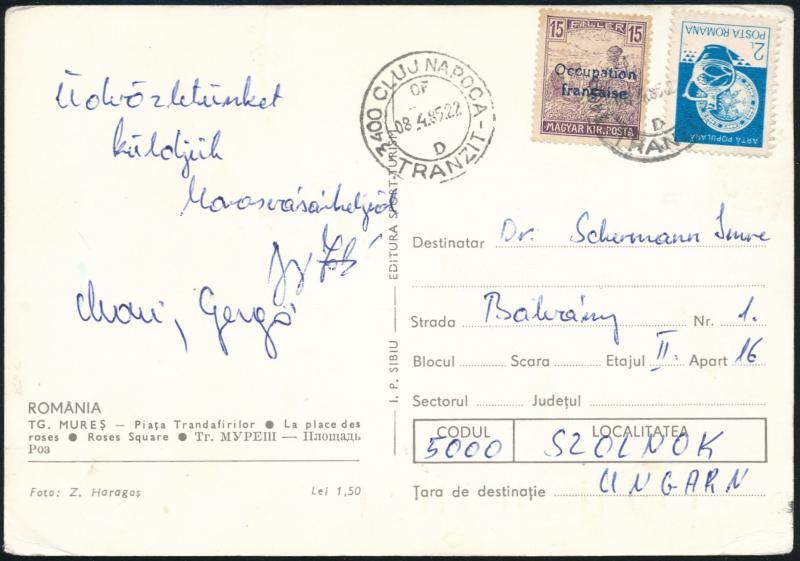 Üdvözletünket
küldjük
Marosvásárhelyről
Mari, Gergő
ROMÂNIA
TG. MUREȘ — Piața Trandafirilor ● La place des
roses ● Roses Square ● Тг. МУРЕШ — Площадь
Роз
Foto: Z. Haragoș Lei 1,50
I. P. SIBIU — EDITURA SPORT-TURISM
3400 CLUJ NAPOCA
OF
08.4.85.22
D
TRANZIT
15 FILLER 15
Occupation
française
MAGYAR KIR. POSTA
POSTA ROMANA
2L
ARTĂ POPULARĂ
TRAN
D
Destinatar Dr. Schermann Imre
Strada Nr. 1.
Blocul Scara Etajul II. Apart 16
Sectorul Județul
CODUL LOCALITATEA
5000 SZOLNOK
Țara de destinație UNGARN